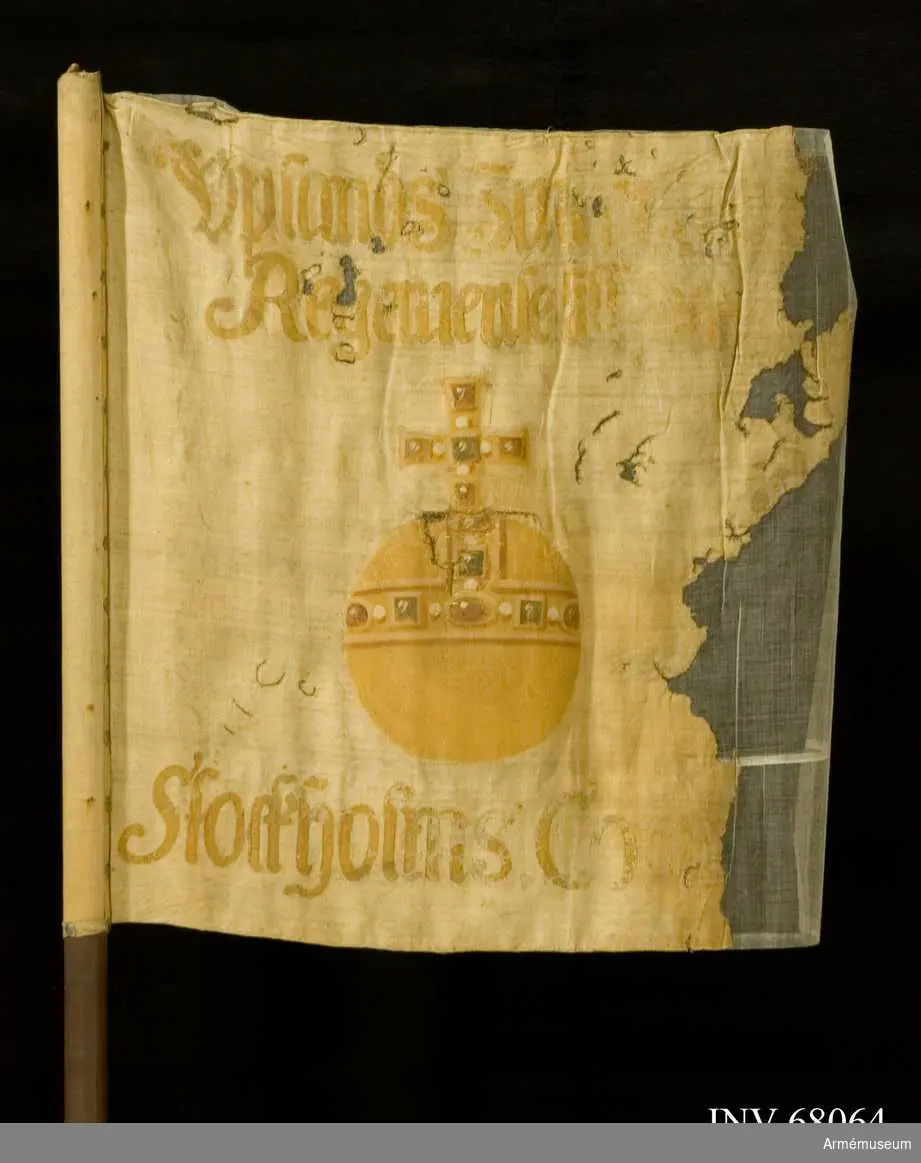 Vplands
Regemente
Stockholms C
INV 68064
Armémuseum